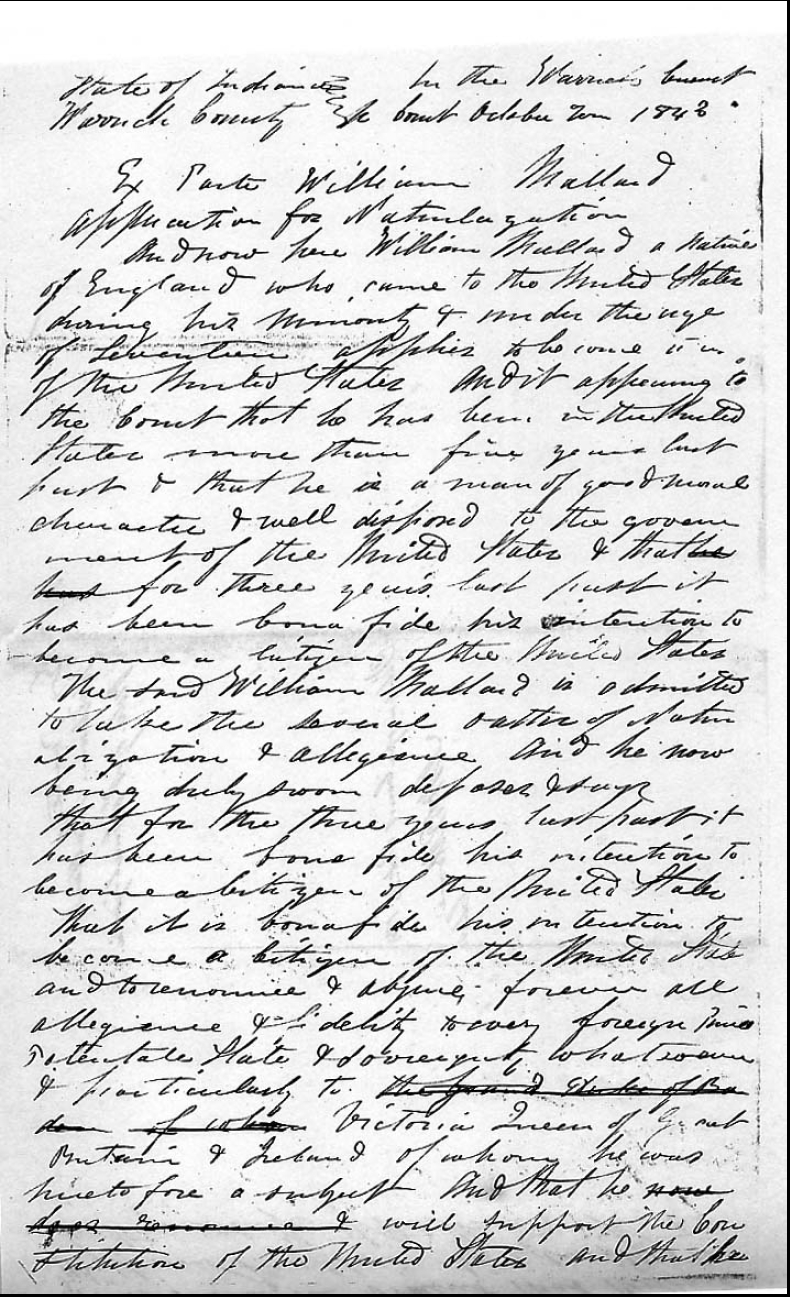 State of Indiana In the Warrick Circuit
Warrick County Ss Court October Term 1843
Ex Parte William Mallard
application for Naturlazation
And now here William Mallard a native
of England who came to the United States
during his minority & under the age
of Seventeen applies to become
of the United States And it appearing to
the Court that he has been in the United
States more than five years last
past & that he is a man of good moral
character & well disposed to the govern
ment of the United States & that he
has for three years last past it
has been bona fide his intention to
become a Citizen of the United States
The said William Mallard is admitted
to take the several oaths of Natur
alization & allegiance And he now
being duly sworn deposes & says
that for the three years last past it
has been bona fide his intention to
become a Citizen of the United States
That it is bona fide his intention to
become a Citizen of the United States
and to renounce & abjure forever all
allegiance & fidelity to every foreign Prince
Potentate State & Sovereignty whatsoever
& particularly to the grand Duke of Ba
den of whom Victoria Queen of Great
Britain & Ireland of whom he was
heretofore a subject And that he now
does renounce & will support the Con
stitution of the United States and that he